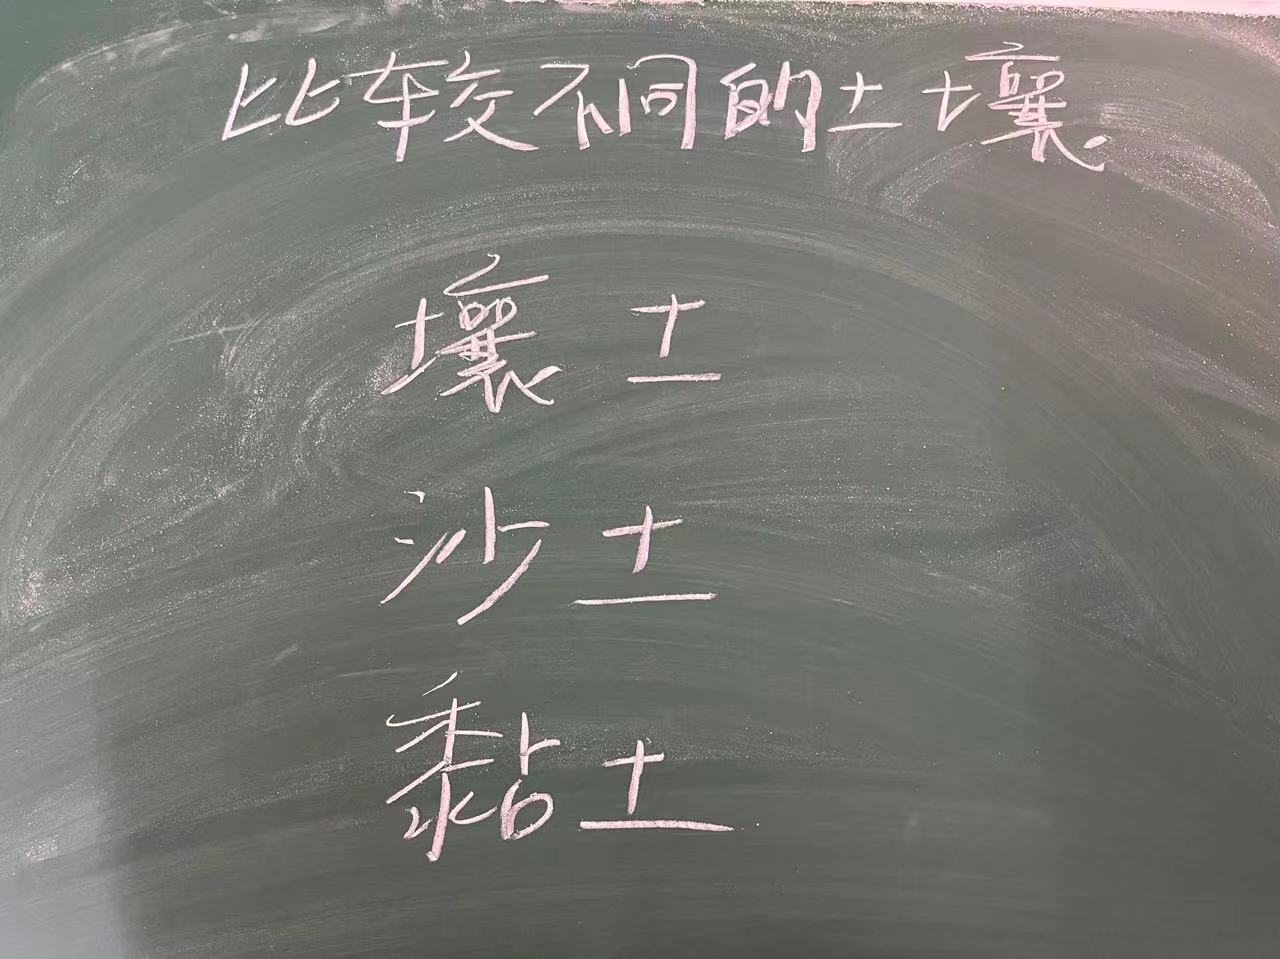 比较不同的土壤
壤土
沙土
黏土